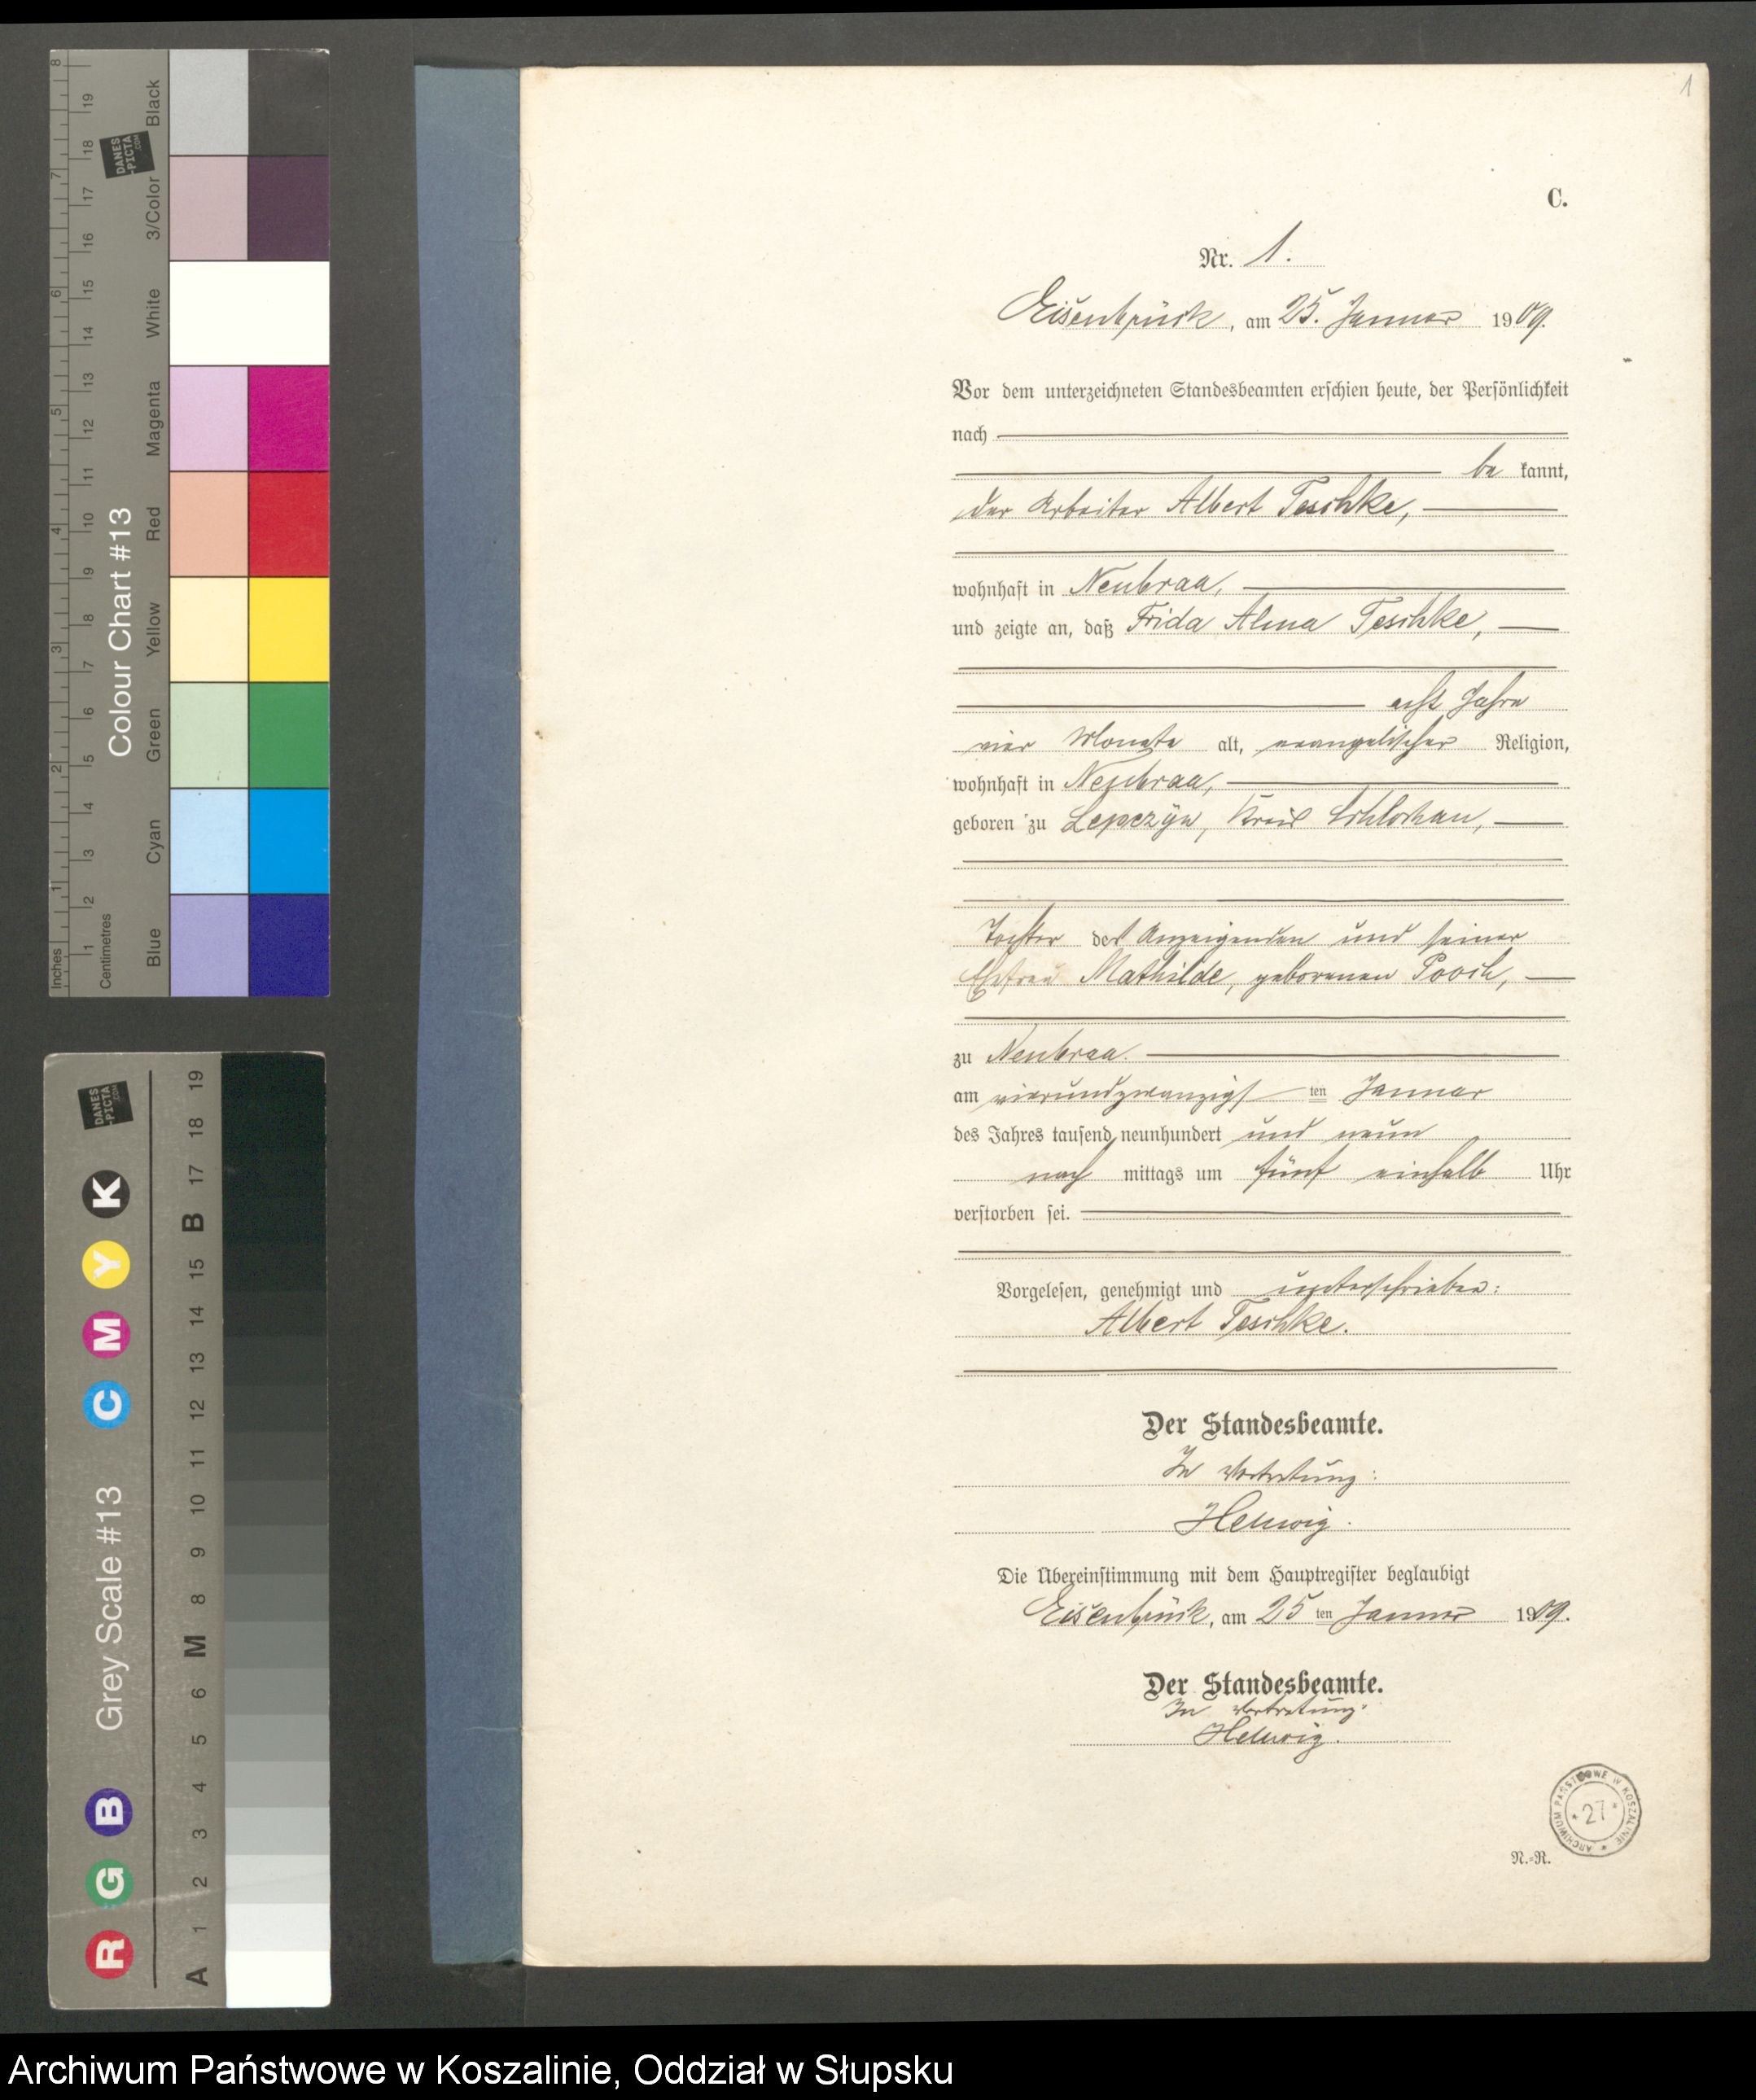 1
C.
Nr. 1.
Eisenbrück, am 25. Januar 1909.
Vor dem unterzeichneten Standesbeamten erschien heute, der Persönlichkeit
nach
be kannt,
der Arbeiter Albert Teschke,
wohnhaft in Neubraa,
und zeigte an, daß Frida Alma Teschke,
acht Jahre
vier Monate alt, evangelischer Religion,
wohnhaft in Neubraa,
geboren zu Lepczyn, Kreis Schlochau,
Tochter des Anzeigenden und seiner
Ehefrau Mathilde, geborenen Pooch,
zu Neubraa.
am vierundzwanzigsten Januar
des Jahres tausend neunhundert und neun
nach mittags um fünf einhalb Uhr
verstorben sei.
Vorgelesen, genehmigt und unterschrieben:
Albert Teschke.
Der Standesbeamte.
In Vertretung:
Helwig.
Die Übereinstimmung mit dem Hauptregister beglaubigt
Eisenbrück, am 25 ten Januar 1909.
Der Standesbeamte.
In Vertretung:
Helwig.
ARCHIWUM PAŃSTWOWE W KOSZALINIE
* 27 *
N.-R.
Colour Chart #13
Blue Cyan Green Yellow Red Magenta White 3/Color Black
Inches 1 2 3 4 5 6 7 8
Centimetres 1 2 3 4 5 6 7 8 9 10 11 12 13 14 15 16 17 18 19
DANES
-PICTA
.COM
Grey Scale #13
R G B C M Y K
A 1 2 3 4 5 6 M 8 9 10 11 12 13 14 15 B 17 18 19
DANES
-PICTA
.COM
Archiwum Państwowe w Koszalinie, Oddział w Słupsku